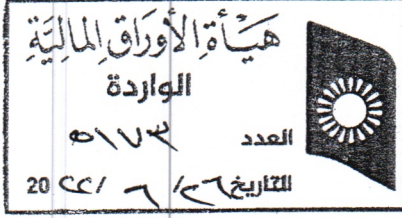 هيأة الأوراق المالية
الواردة
العدد ٥١٧٣
التاريخ ٢٦/ ٦ /٢٠٢٢